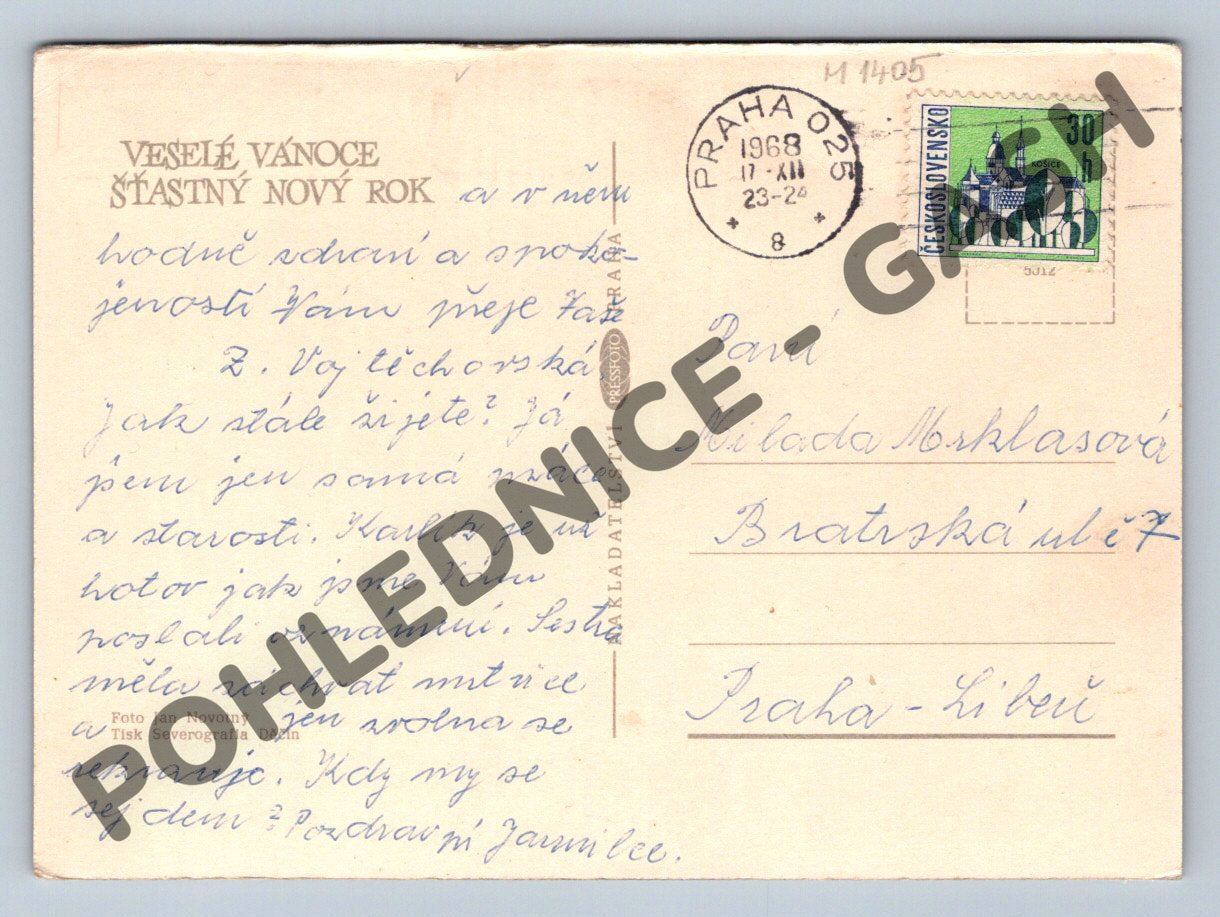 M 1405
PRAHA 025
1968
17.-XII
23-24
8
ČESKOSLOVENSKO
30
h
KOŠICE
VESELÉ VÁNOCE
ŠŤASTNÝ NOVÝ ROK a v něm
hodně zdraví a spoko-
jeností Vám přeje Vaše
Z. Vojtěchovská
Jak stále žijete? Já
jsem jen samá práce
a starosti. Karlík je už
hotov jak jsme Vám
poslali oznámení. Sestra
měla záchvat mrtvice
a jen zvolna se
rekravuje. Kdy my se
sejdem? Pozdrav pí Jarmilce.
Foto Jan Novotný
Tisk Severografia Děčín
NAKLADATELSTVÍ PRESSFOTO PRAHA
Paní
Milada Mrklasová
Bratrská ul č 7
Praha - Libeň
POHLEDNICE - GASH